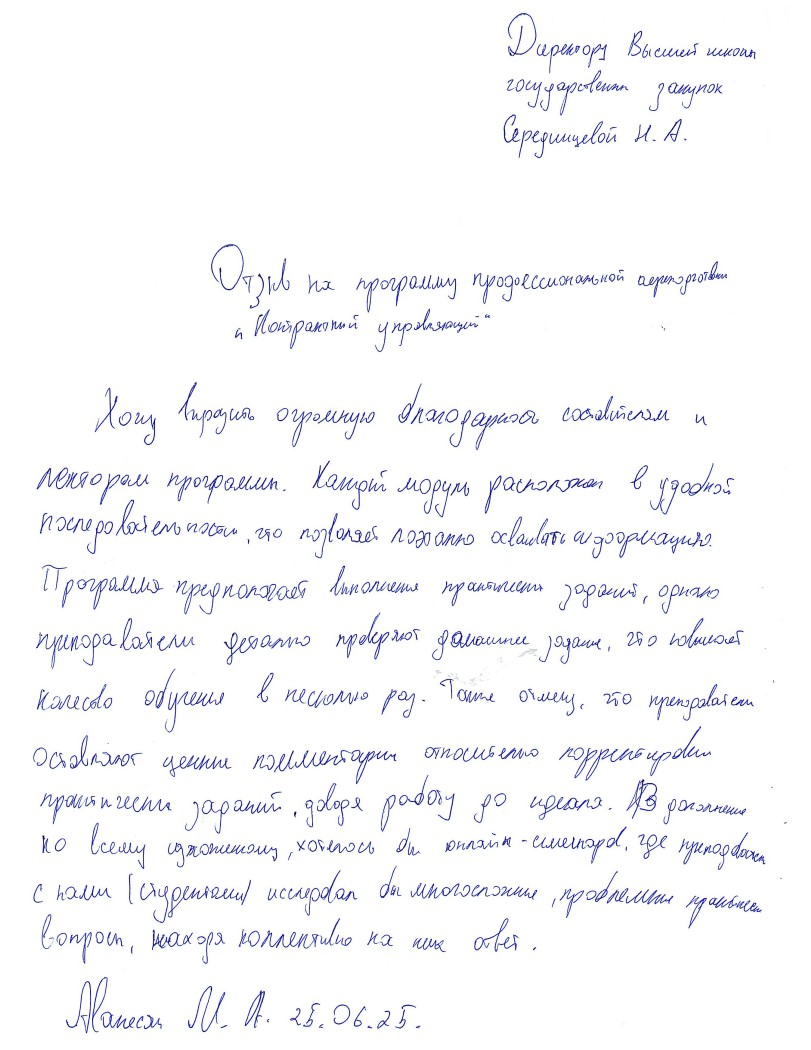 Директору Высшей школы
государственных закупок
Серединцевой Н. А.
Отзыв на программу профессиональной переподготовки
"Контрактный управляющий"
Хочу выразить огромную благодарность составителям и
лекторам программы. Каждый модуль расположен в удобной
последовательности, что позволяет поэтапно осваивать информацию.
Программа предполагает выполнения практических заданий, однако
преподаватели детально проверяют домашнее задание, что повышает
качество обучения в несколько раз. Также отмечу, что преподаватели
оставляют ценные комментарии относительно корректировки
практических заданий, доводя работу до идеала. В дополнение
ко всему изложенному, хотелось бы онлайн-семинаров, где преподаватель
с нами (студентами) исследовал бы многосложные, проблемные практические
вопросы, находя коллективно на них ответ.
Аванесян М. А. 25.06.25.